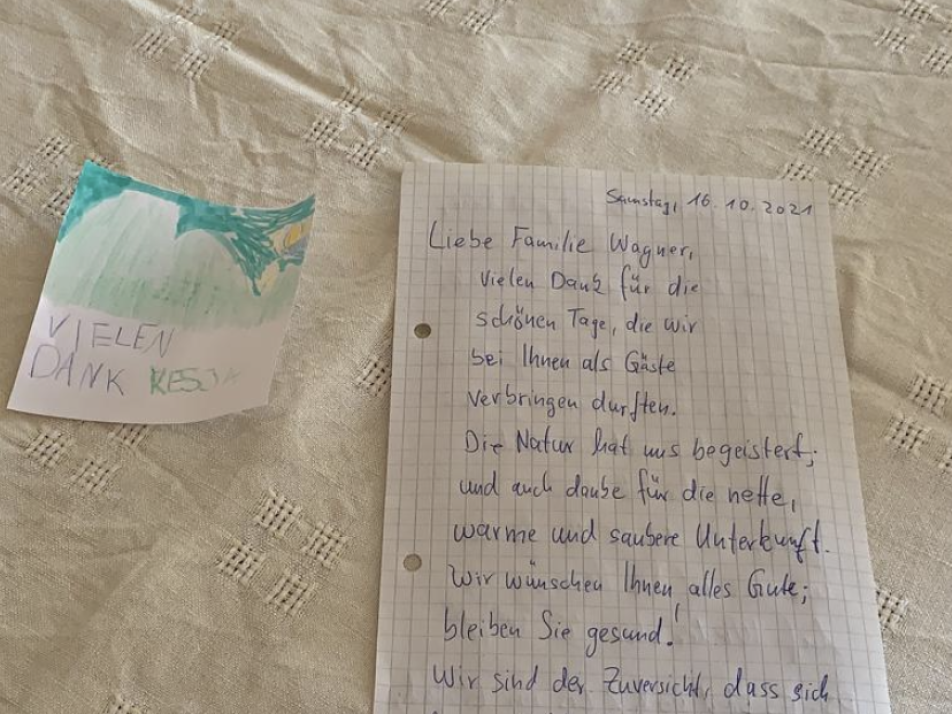 VIELEN
DANK
Samstag, 16.10.2021
Liebe Familie Wagner,
vielen Dank für die
schönen Tage, die wir
bei Ihnen als Gäste
verbringen durften.
Die Natur hat uns begeistert;
und auch danke für die nette,
warme und saubere Unterkunft.
Wir wünschen Ihnen alles Gute;
bleiben Sie gesund!
Wir sind der Zuversicht, dass sich